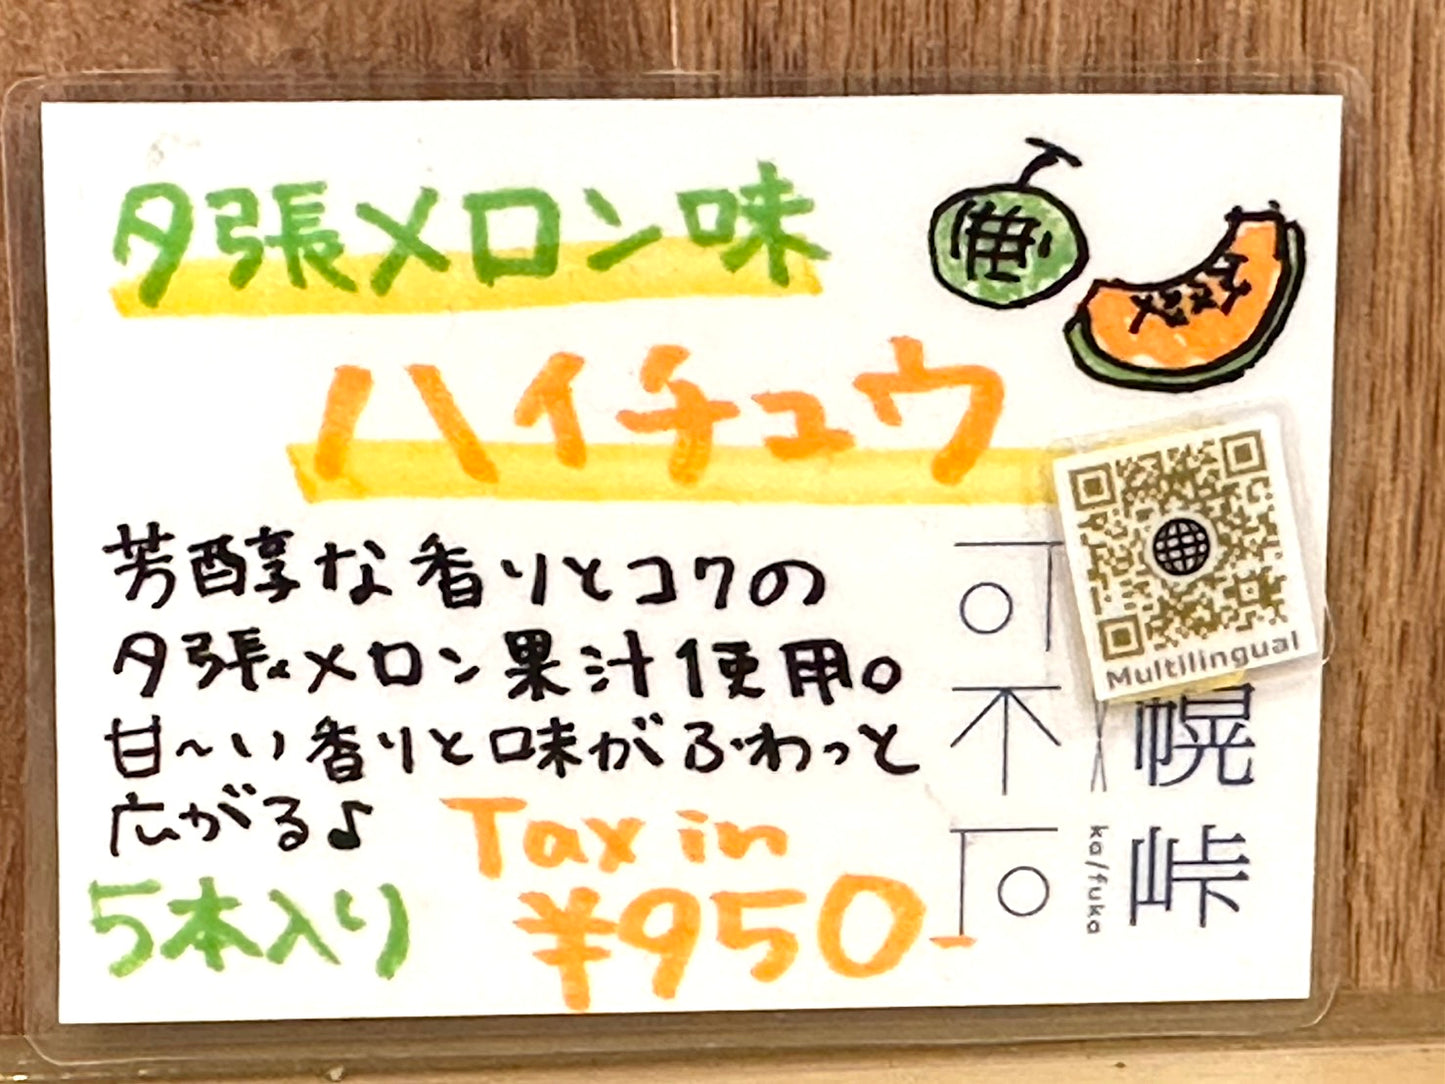 夕張メロン味
ハイチュウ
芳醇な香りとコクの
夕張メロン果汁使用。
甘〜い香りと味がふわっと
広がる♪
5本入り
Tax in
¥950-
Multilingual
幌
峠
ka/fuka